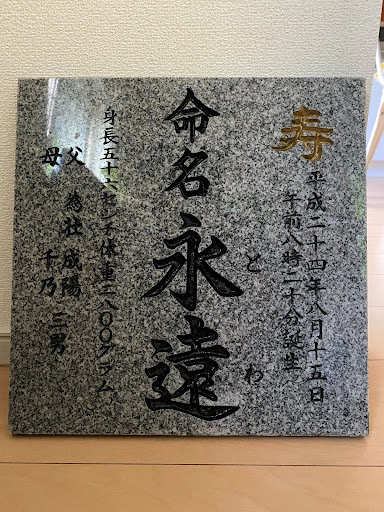 寿
平成二十四年八月十五日
午前八時二十分誕生
とわ
命名永遠
身長五十六センチ体重二八〇〇グラム
父 惣社成陽
母 千乃 三男